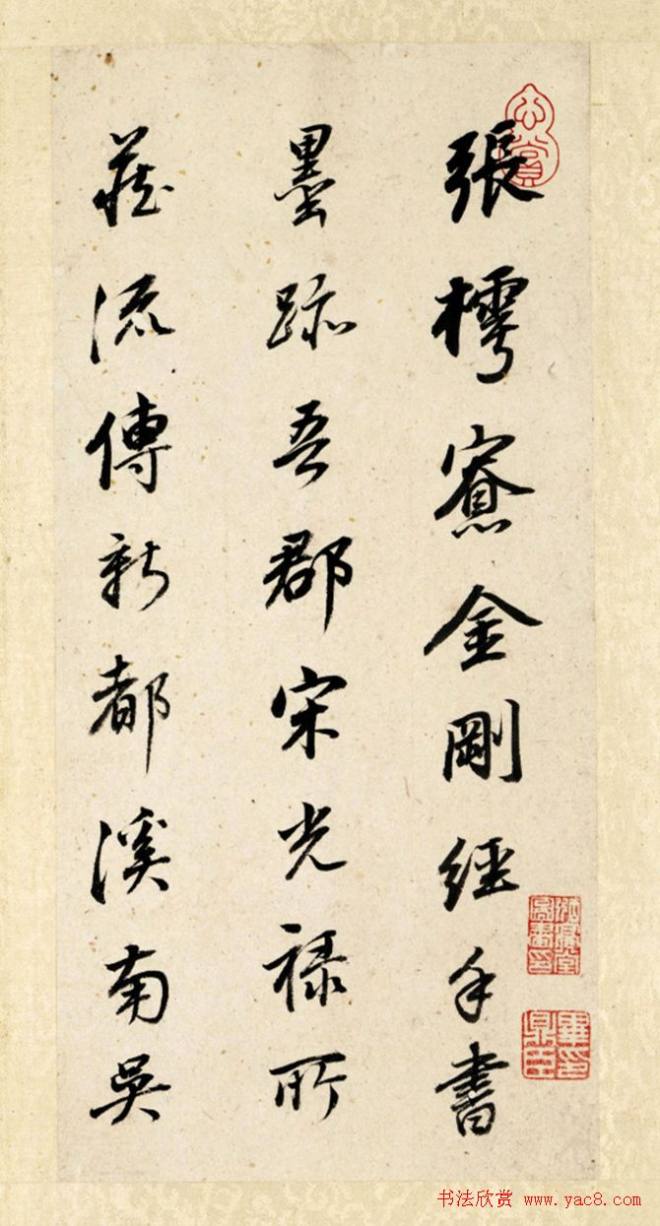 張樗寮金剛經手書
墨跡吾郡宋光祿所
藏流傳新都溪南吳
书法欣赏 www.yac8.com